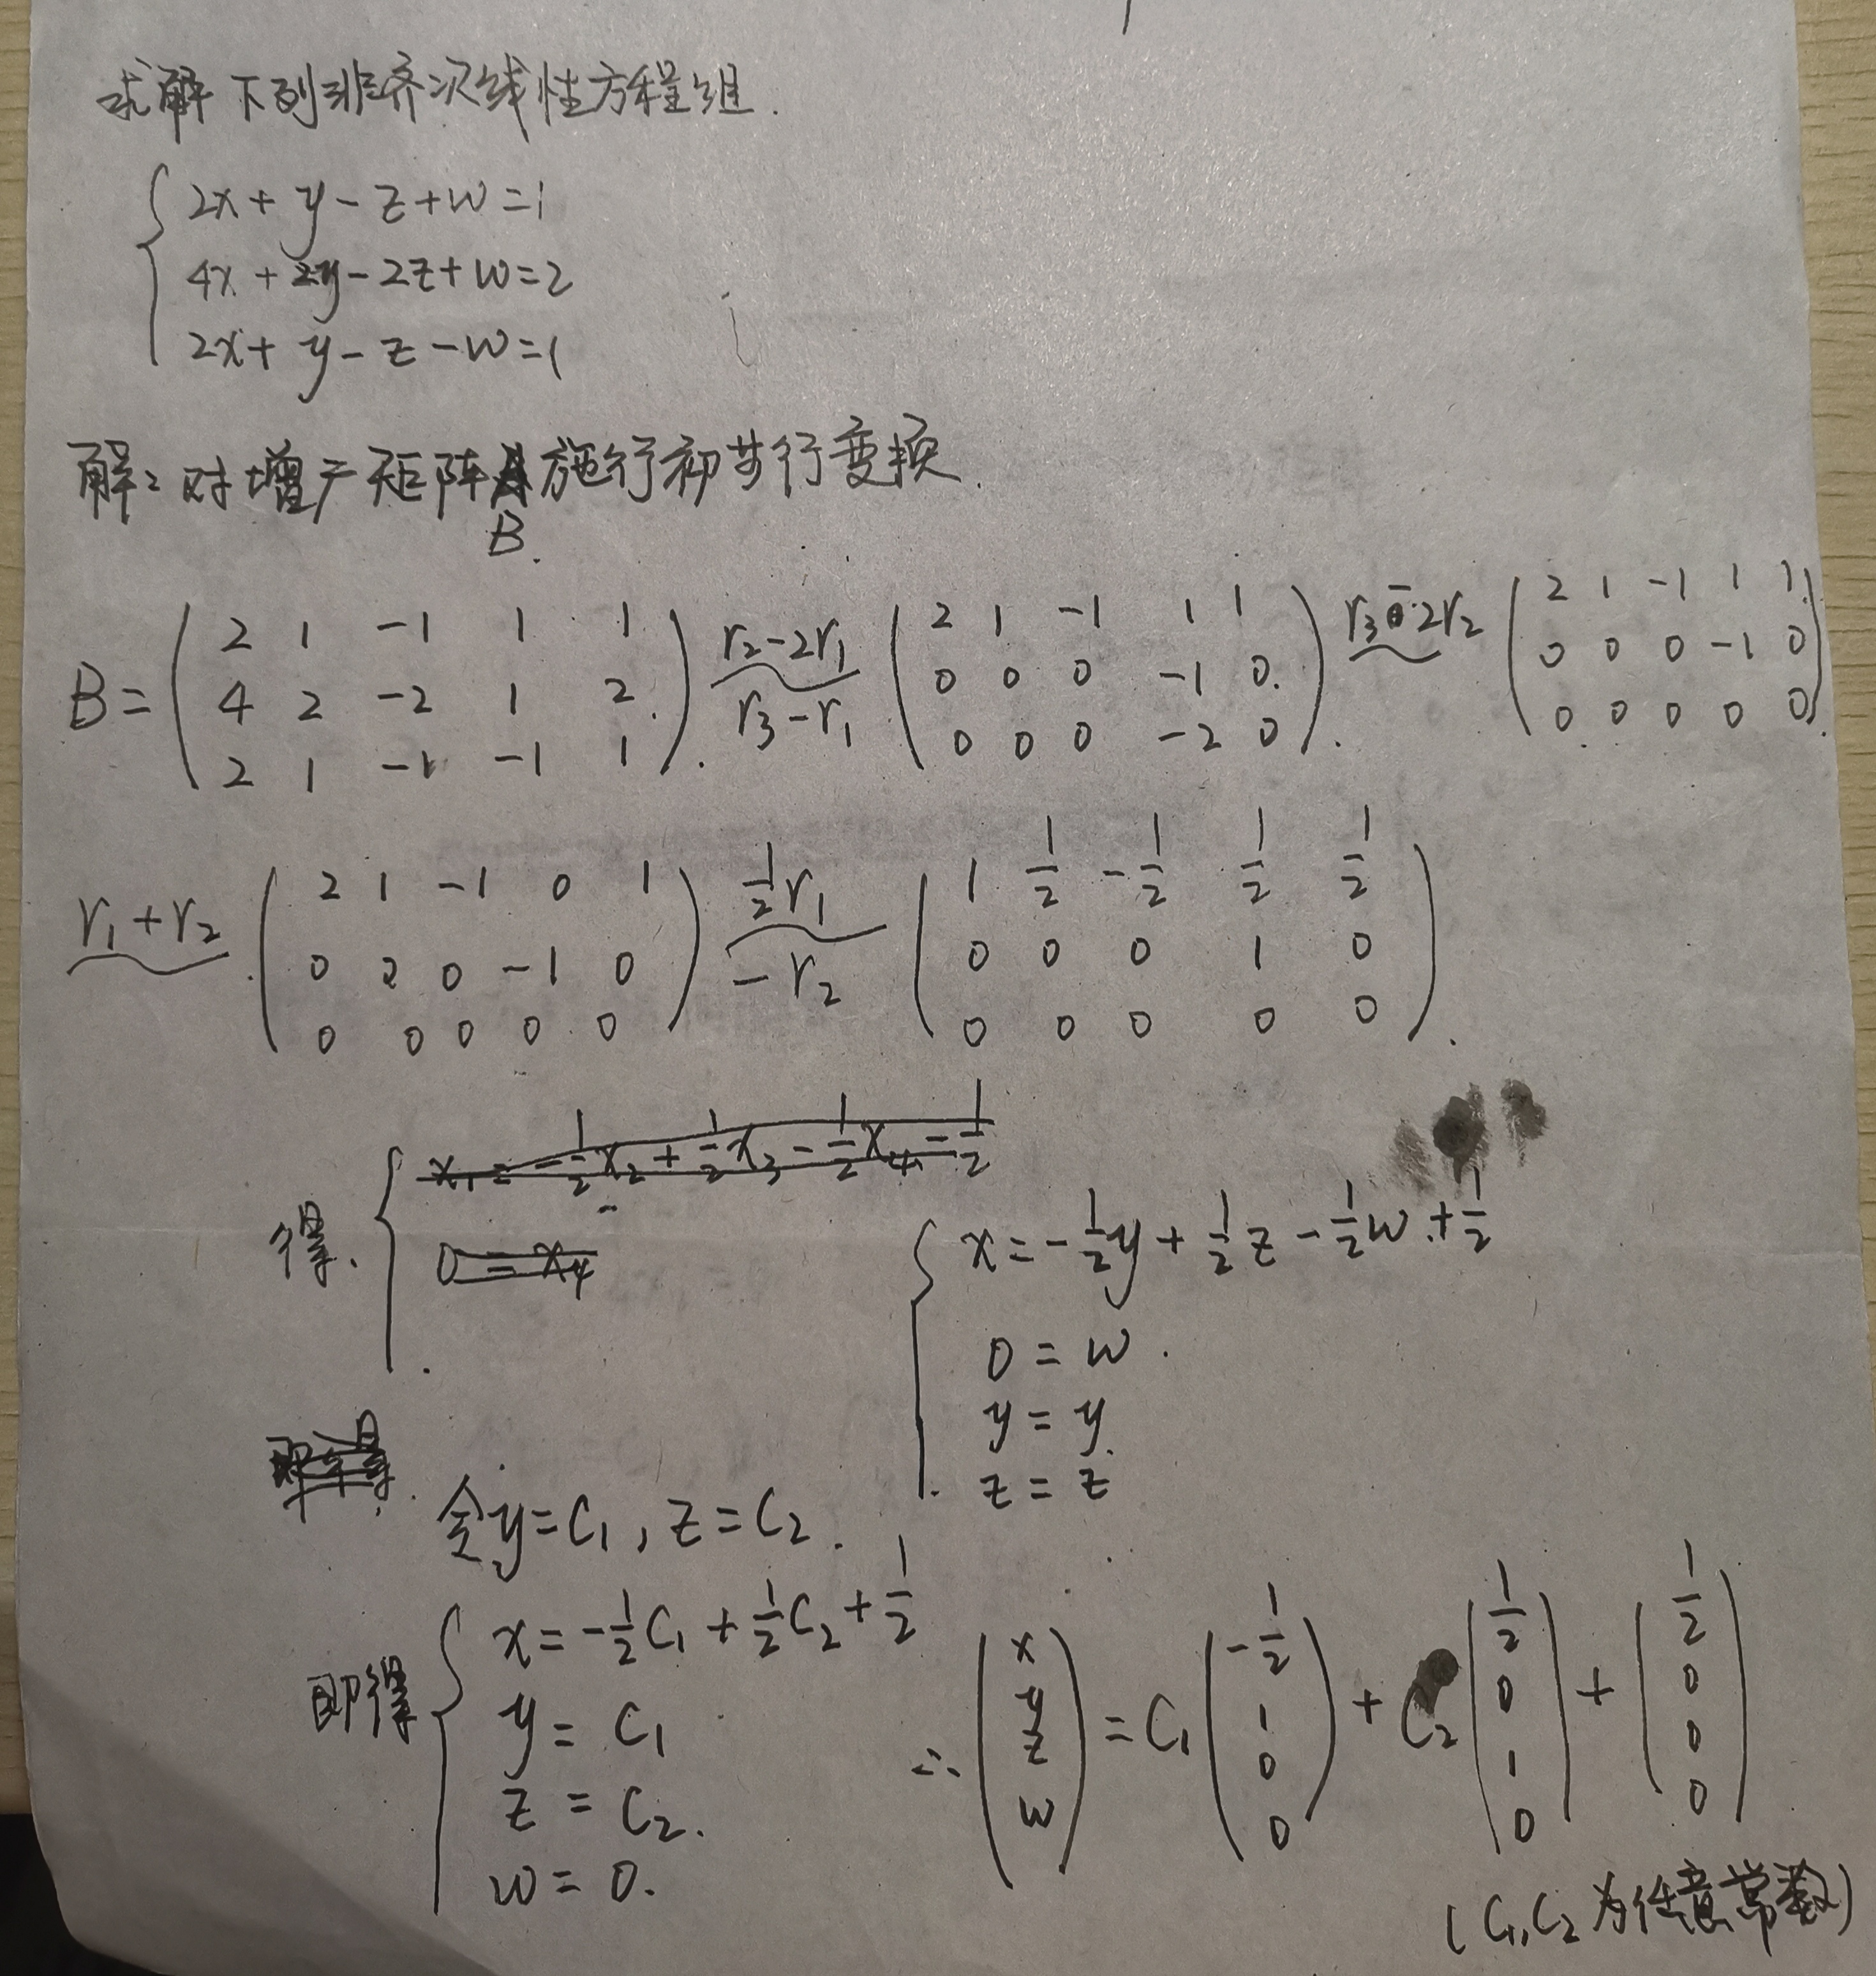 求解下列非齐次线性方程组.
2x + y - z + w = 1
4x + 2y - 2z + w = 2
2x + y - z - w = 1
解: 对增广矩阵B施行初步行变换.
B = ( 2 1 -1 1 1 ; 4 2 -2 1 2 ; 2 1 -1 -1 1 ) r₂-2r₁ r₃-r₁ ( 2 1 -1 1 1 ; 0 0 0 -1 0 ; 0 0 0 -2 0 ) r₃-2r₂ ( 2 1 -1 1 1 ; 0 0 0 -1 0 ; 0 0 0 0 0 )
r₁+r₂ ( 2 1 -1 0 1 ; 0 0 0 -1 0 ; 0 0 0 0 0 ) ½r₁ -r₂ ( 1 ½ -½ ½ ½ ; 0 0 0 1 0 ; 0 0 0 0 0 )
得.
x₁ = -½x₂ + ½x₃ - ½x₄ = ½
0 = x₄
x = -½y + ½z - ½w + ½
0 = w.
y = y
z = z
令y = C₁, z = C₂.
即得
x = -½C₁ + ½C₂ + ½
y = C₁
z = C₂.
w = 0.
∴ ( x ; y ; z ; w ) = C₁ ( -½ ; 1 ; 0 ; 0 ) + C₂ ( ½ ; 0 ; 1 ; 0 ) + ( ½ ; 0 ; 0 ; 0 )
(C₁,C₂ 为任意常数)